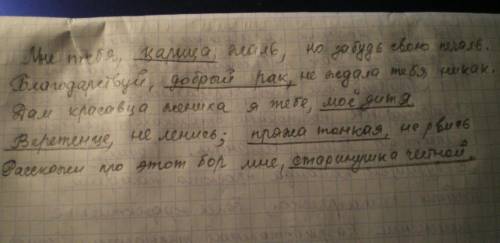 Мне тебя, царица, жаль, но забудь свою печаль.
Благодарствуй, добрый рак, не ждала тебя никак.
Дам красавца жениха я тебе, моё дитя
Веретенце, не ленись; пряжа тонкая, не рвись
Расскажи про этот бор мне, старинушка честной.